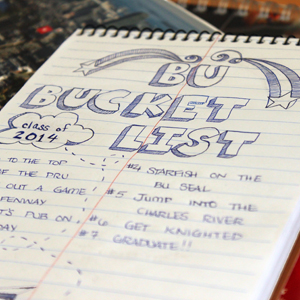 BU
BUCKET
LIST
class of
2014
TO THE TOP
OF THE PRU
OUT A GAME
FENWAY
PUB ON
#4 STARFISH ON THE
BU SEAL
#5 JUMP INTO THE
CHARLES RIVER
#6 GET KNIGHTED
#7 GRADUATE!!